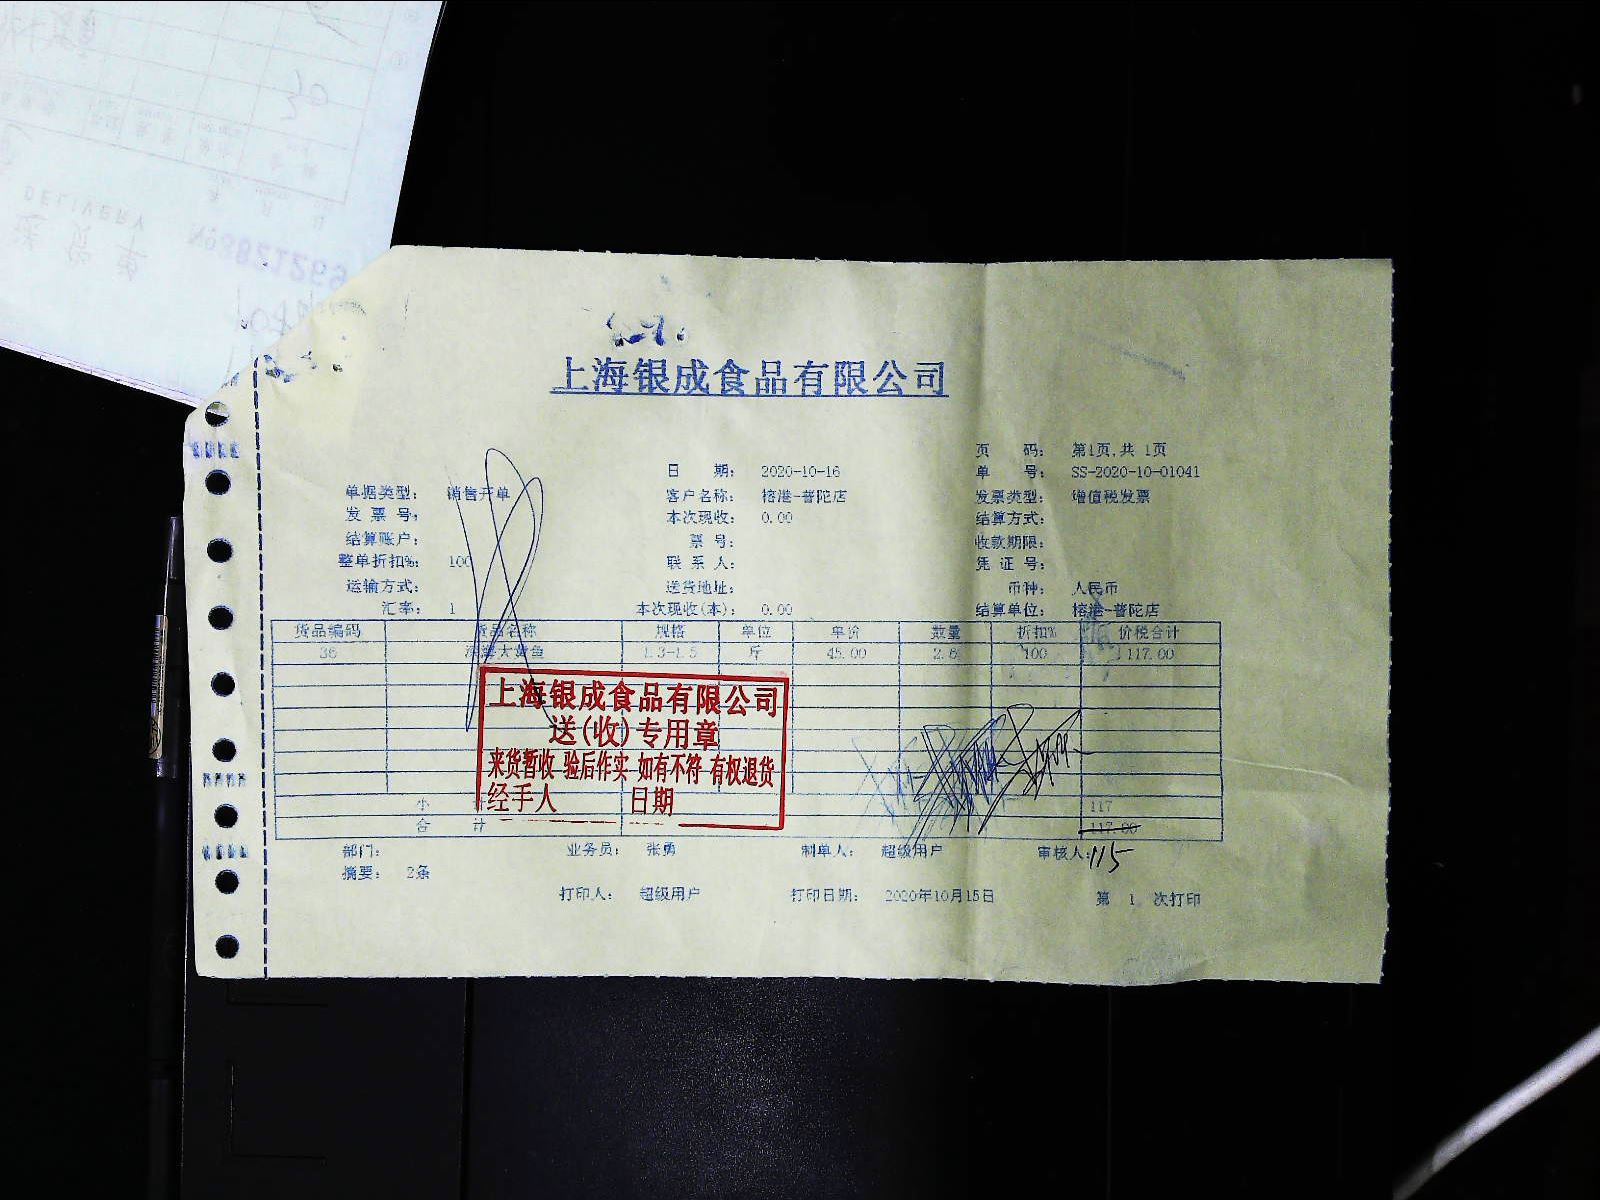 DELIVERY
送货单
No8821269
上海银成食品有限公司
页 码: 第1页,共 1页
日 期: 2020-10-16 单 号: SS-2020-10-01041
单据类型: 销售开单 客户名称: 榕港-普陀店 发票类型: 增值税发票
发 票 号: 本次现收: 0.00 结算方式:
结算账户: 票 号: 收款期限:
整单折扣%: 100 联 系 人: 凭 证 号:
运输方式: 送货地址: 币种: 人民币
汇率: 1 本次现收(本): 0.00 结算单位: 榕港-普陀店
货品编码 货品名称 规格 单位 单价 数量 折扣% 价税合计
36 大黄鱼 1.3-1.5 斤 45.00 2.6 100 117.00
上海银成食品有限公司
送(收)专用章
来货暂收 验后作实 如有不符 有权退货
经手人 日期
小 计 117
合 计 117.00
部门: 业务员: 张勇 制单人: 超级用户 审核人: 115
摘要: 2条
打印人: 超级用户 打印日期: 2020年10月15日 第 1 次打印